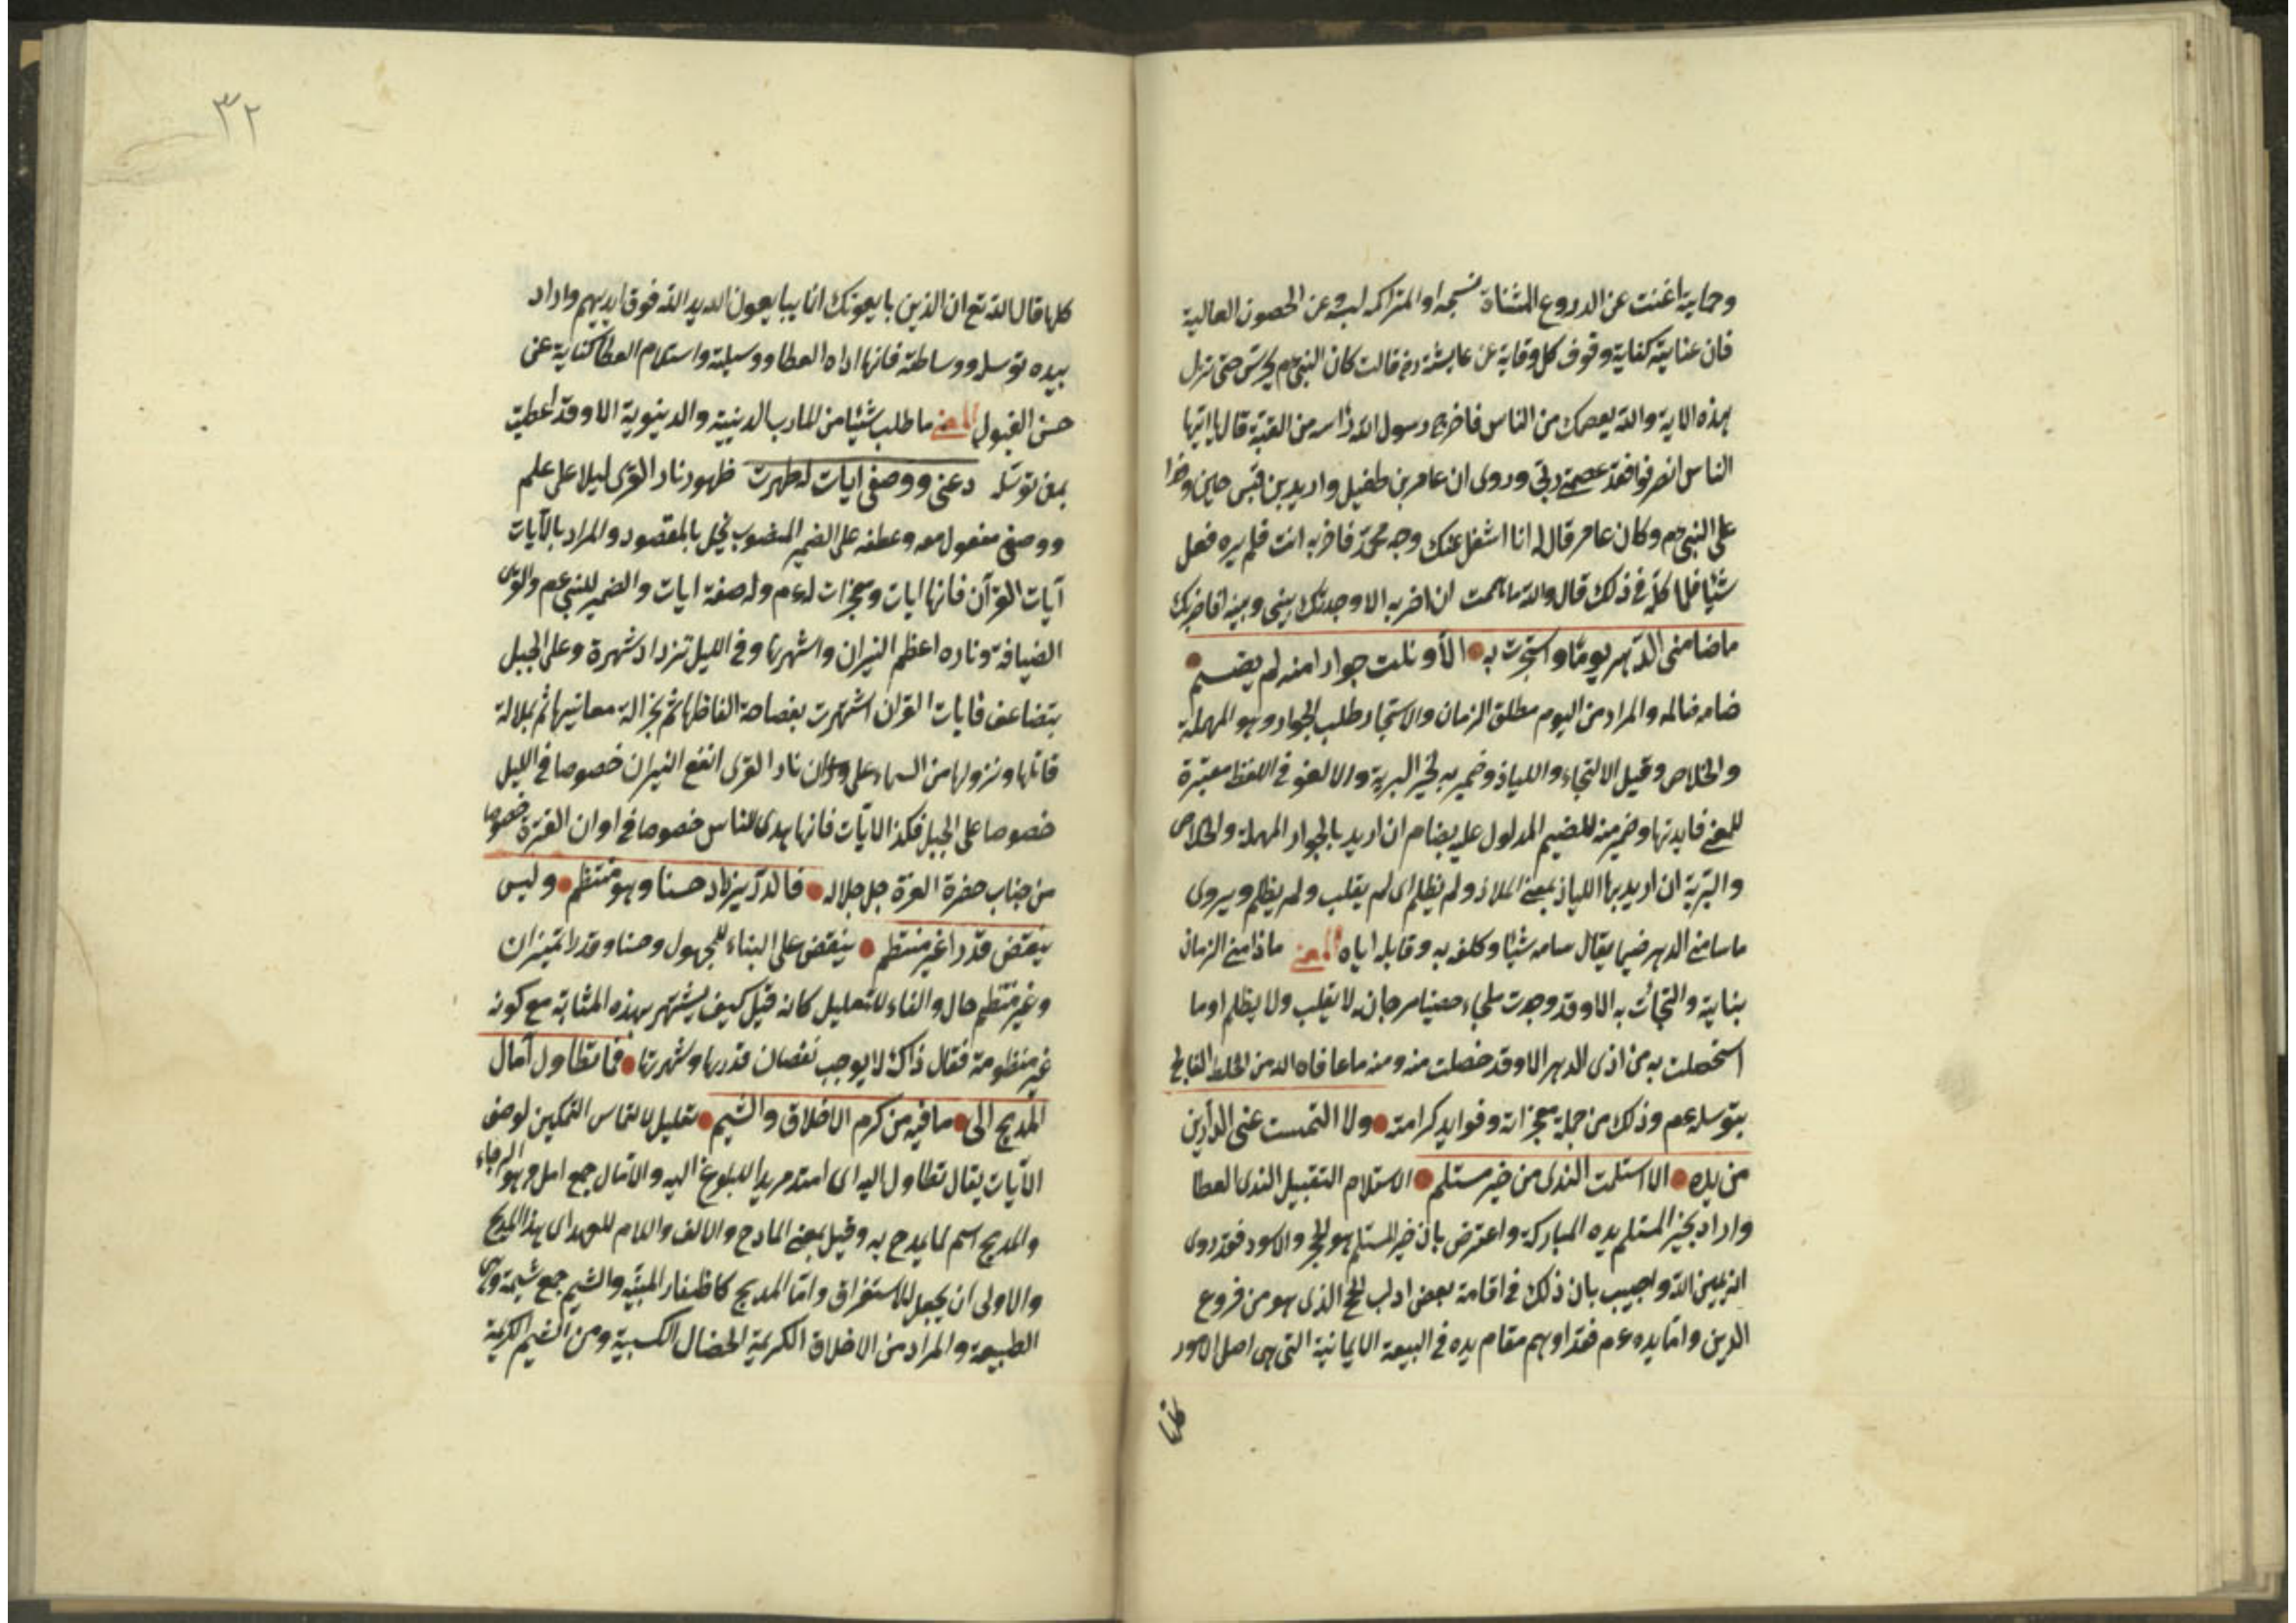 وحماية اغنت عن الدروع المثناة نسجها والمتراكمة لبسه وعن الحصون العالية
فان عناية كفاية وقوف كل وقاية عن عايشة رضـ قالت كان النبي عم يحرس حتى نزل
بهذه الاية والله يعصمك من الناس فاخرج رسول الله راسه من القبة قال ايها
الناس انصرفوا فقد عصمني ربي وروى ان عامر بن طفيل واربد بن قيس حين وفدا
على النبي عم وكان عامر قال له انا اشغل عنك وجه محمد فاضربه انت فلم يره فعل
شيئا فلما كلمه في ذلك قال والله ما هممت ان اضربه الا وجدتك بيني وبينه افاضربك
ماضامنى الدهر يوما واستجرت به الا ونلت جوارا منه لم يضم
ضامه ظلمه والمراد من اليوم مطلق الزمان والاستجار طلب الجوار وهو المهملة
والخلاص وقيل الالتجاء واللياذ وضمير به لخير البرية ولا لغو في اللفظ معتبرة
للمعنى فايدتها وضمير منه للضيم المدلول عليه بضام ان اريد بالجوار المهملة والخلاص
والبرية ان اريد بها اللياذ بمعنى الملاذ ولم يظلم اى لم يقلب ولم يظلم ويروى
ماسامنى الدهر ضيما يقال سامه شيئا وكلفه به وقابله اياه المعنى ماذامنى الزمان
بناية والتجأت به الا وقد وجدت ملجاء حصينا مرجانه لا يقلب ولا يظلم اوما
استخلصت به من اذى الدهر الا وقد خلصت منه ومنه ما عافاه الله من الخلط الفالج
بتوسله عم وذلك من جملة معجزاته وفوايد كرامته ولا التمست غنى الدارين
من يده الا استلمت الندى من خير مستلم الاستلام التقبيل الندى العطا
واراد بخير المستلم يده المباركة واعترض بان خير المستلم هو الحجر والاسود فقد روى
انه يمين الله واجيب بان ذلك في اقامة بعض ادب الحج الذى هو من فروع
الدين واما يده عم فقد اوهم مقام يده في البيعة الايمانية التى هى اصل الامور
كلها
٣٢
كلها قال الله تع ان الذين يبايعونك انما يبايعون الله يد الله فوق ايديهم واراد
بيده توسله ووساطته فانها اداه العطا ووسيلة واستلام العطا كناية عن
حسن القبول المعنى ما طلب شيئا من المارب الدينية والدينوية الا وقد اعطيت
بمن توسله دعنى ووصفى ايات له ظهرت ظهور نار القرى ليلا على علم
ووصفى مفعول معه وعطفه على الضمير المنصوب يخل بالمقصود والمراد بالآيات
آيات القرآن فانها ايات ومعجزات له عم وله صفة ايات والضمير للنبي عم والقرى
الضيافة وناره اعظم النيران واشهرها وفي الليل تزداد شهرة وعلى الجبل
يتضاعف فايات القران اشتهرت بفصاحة الفاظها ثم بجزالة معانيها ثم بجلالة
قائلها ونزولها من السماء على وان نار القرى انفع النيران خصوصا في الليل
خصوصا على الجبل فكذا الايات فانها هدى للناس خصوصا في اوان الفترة خصوصا
من جناب حضرة العزة جل جلاله فالدر يزداد حسنا وهو منتظم وليس
ينقص قدرا غير منتظم ينقص على البناء للمجهول وحسنا وقدرا تميزان
وغير منتظم حال والفاء للتعليل كانه قيل كيف يشتهر بهذه المثابة مع كونه
غير منظومة فقال ذاك لا يوجب نقصان قدرها وشهرتها فما تطاول آمال
المديح الى ما فيه من كرم الاخلاق والشيم تعليل بالتماس التمكين لوصف
الآيات يقال تطاول اليه اى امتد مريدا للبلوغ اليه والآمال جمع امل وهو الرجاء
والمديح اسم لما يمدح به وقيل بمعنى المادح والالف واللام للعهد اى هذا المديح
والاولى ان يجعل للاستغراق واما المديح كاظفار المنية والشيم جمع شيمة وهى
الطبيعة والمراد من الاخلاق الكريمة الخصال الكسبية ومن الشيم الكريمة